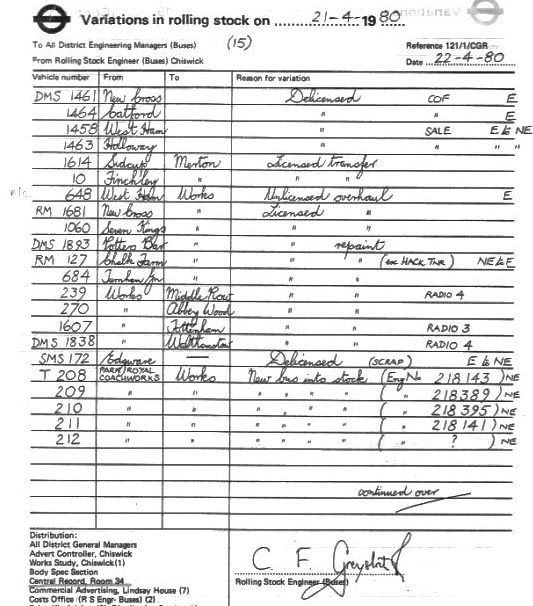 Variations in rolling stock on 21-4-1980
To All District Engineering Managers (Buses) (15) Reference 121/1/CGR
From Rolling Stock Engineer (Buses) Chiswick Date 22-4-80
Vehicle number From To Reason for variation
DMS 1461 New Cross Delicensed COF E
1464 Catford " " E
1458 West Ham " SALE E & NE
1463 Holloway " " " "
1614 Sidcup Merton Licensed transfer
10 Finchley " " "
648 West Ham Works Unlicensed overhaul E
RM 1681 New Cross " Licensed "
1060 Seven Kings " " "
DMS 1893 Potters Bar " " repaint
RM 127 Chalk Farm " " " (ex HACK TNR) NE & E
684 Turnham Gn " " "
239 Works Middle Row " " RADIO 4
270 " Abbey Wood " "
1607 " Tottenham " " RADIO 3
DMS 1838 " Walthamstow " " RADIO 4
SMS 172 Edgware — Delicensed (SCRAP) E & NE
T 208 PARK ROYAL COACHWORKS Works New bus into stock (Eng No 218143) NE
209 " " " " " " ( " 218389) NE
210 " " " " " " ( " 218395) NE
211 " " " " " " ( " 218141) NE
212 " " " " " " ( " ? ) NE
continued over
Distribution:
All District General Managers
Advert Controller, Chiswick
Works Study, Chiswick (1)
Body Spec Section
Central Record, Room 34
Commercial Advertising, Lindsay House (7)
Costs Office (R S Engr- Buses) (2)
C. F. Greystock
Rolling Stock Engineer (Buses)